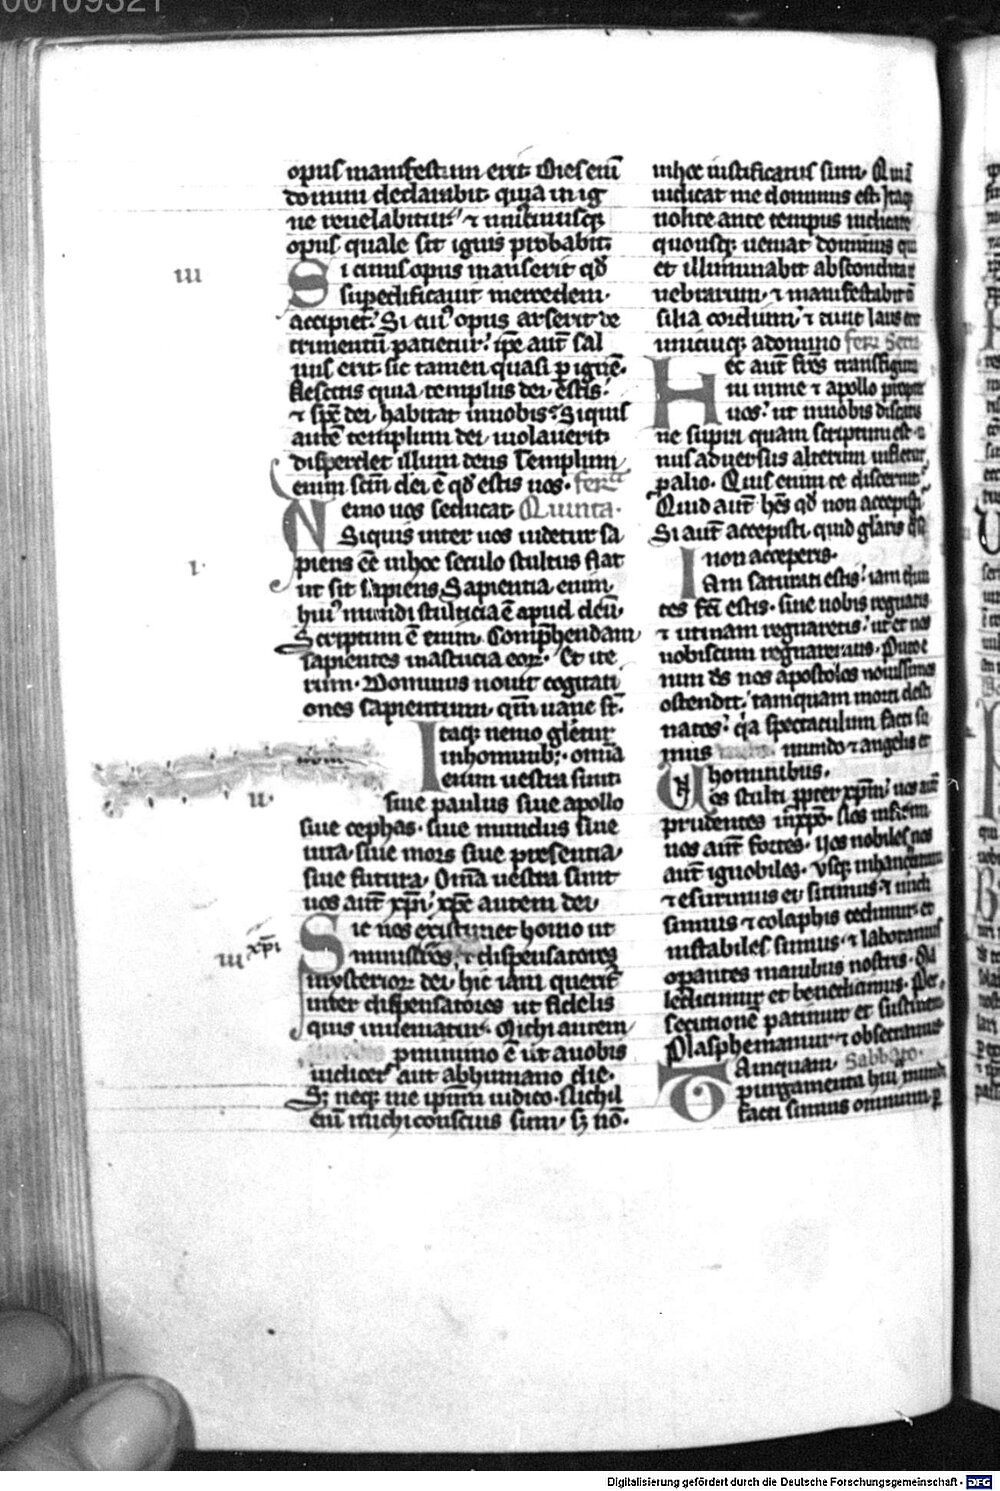 00109321
opus manifestum erit. Dies eni̅
domini declarabit. quia in ig
ne reuelabitur. ⁊ uniuscuiusq;
opus quale sit ignis probabit.
Si cuius opus manserit qd̅
supedificauit mercedem.
accipiet. Si cuiꝰ opus arserit de
trimentu̅ patietur. ip̅e aut̅ sal
uus erit. sic tamen quasi p igne̅.
Nescitis quia templus dei estis.
⁊ sp̅c dei habitat in uobis. Siquis
aute̅ templum dei uiolauerit.
disperdet illum deus. Templum
enim sc̅m dei e̅ qd̅ estis uos. feria
Nemo uos seducat. Quinta.
Siquis inter uos uidetur sa
piens e̅e in hoc seculo stultus fiat
ut sit sapiens. Sapientia enim
huiꝰ mundi stulticia e̅ apud deu̅.
Scriptum e̅ enim. Comp̅hendam
sapientes in astucia eoꝝ. Et ite
rum. Dominus nouit cogitati
ones sapientium. qm̅ uane st̅.
Itaq; nemo glietur
in hominib;. omi̅a
enim uestra sunt.
siue paulus siue apollo
siue cephas. siue mundus siue
uita. siue mors siue presentia.
siue futura. Omi̅a uestra sunt
uos aut̅ xp̅i. xp̅c autem dei.
Sic nos existimet homo ut
ministros ⁊ dispensatores
mysterioꝝ dei. hic iam querit̅
inter dispensatores ut fidelis
quis inueniatur. Michi autem
pminimo e̅ ut a uobis
iudicer aut ab humano die.
Sꝫ neq; me ipsum iudico. Nichil
eni̅ michi conscius sum. sꝫ no̅.
in hoc iustificatus sum. Qui
iudicat me dominus est. Itaq;
nolite ante tempus iudicare
quousq; ueniat dominus qui
et illuminabit abscondita te
nebrarum. ⁊ manifestabit
silia cordium. ⁊ tunc laus erit
unicuiq; a domino feria Sexta
Hec aut̅ fr̅es transfigura
ui in me ⁊ apollo propter
uos. ut in nobis discatis
ne supra quam scriptum est
nus aduersus alterum infletur
p alio. Quis enim te discernit.
Quid aut̅ hes qd̅ non accepisti.
Si aut̅ accepisti. quid gl̅aris q̅si
non acceperis.
Iam saturati estis. iam diui
tes fc̅i estis. sine nobis regnatis
⁊ utinam regnaretis. ut et nos
uobiscum regnaremus. Puto e
nim ds̅ nos apostolos nouissimos
ostendit. tamquam morti desti
natos. qa spectaculum facti su
mus mundo ⁊ angelis et
hominibus.
Nos stulti ppter xp̅m. uos aut̅
prudentes in xp̅o. Nos infirmi
uos aut̅ fortes. Uos nobiles nos
aut̅ ignobiles. Vsq; in hanc horam
⁊ esurimus et sitimus. ⁊ nudi
sumus ⁊ colaphis cedimur et
instabiles sumus. ⁊ laboramus
opantes manibus nostris. Ma
ledicimur et benedicimus. Per
secutione̅ patimur et sustinemus
Blasphemamur ⁊ obsecramus
Tamquam. Sabbato.
purgamenta huiꝰ mundi
facti sumus omnium p
iii
i.
ii.
iii xp̅i
Digitalisierung gefördert durch die Deutsche Forschungsgemeinschaft - DFG